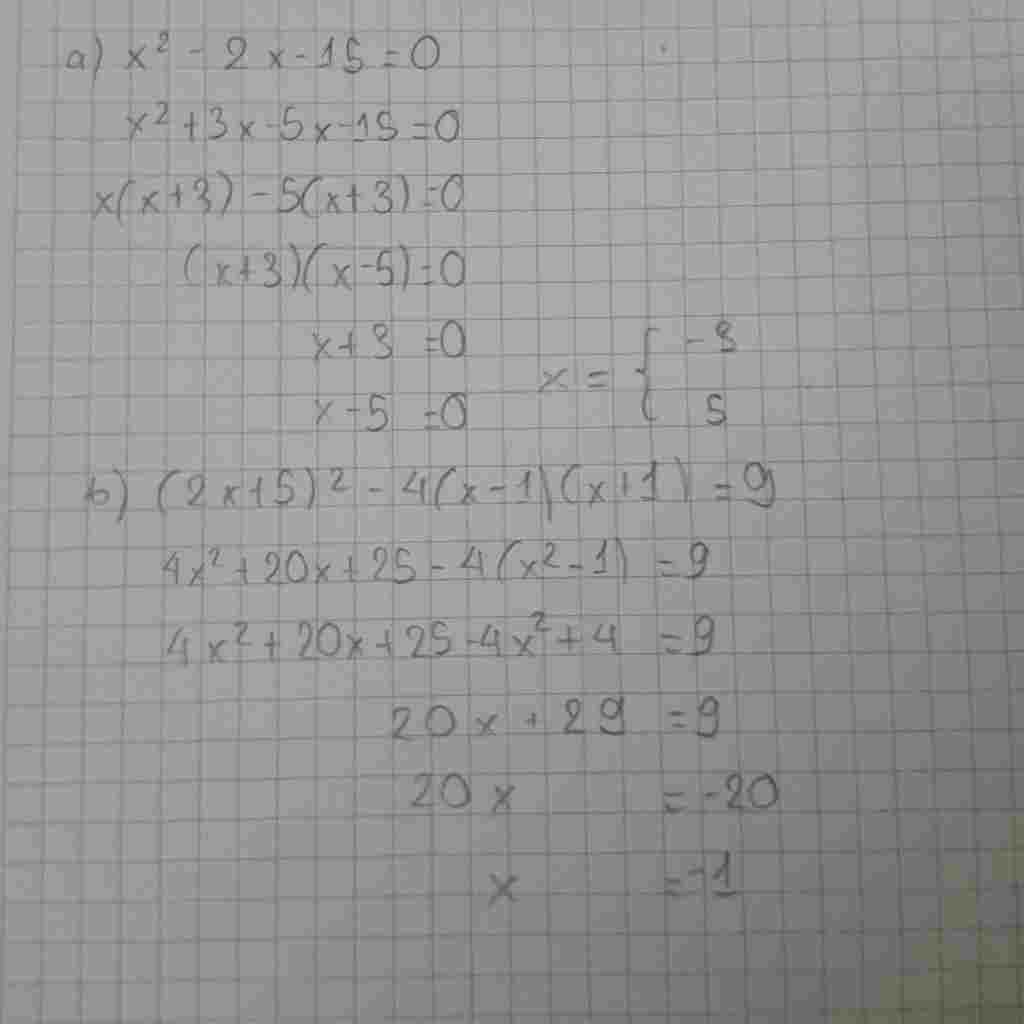 a) x² - 2x - 15 = 0
x² + 3x - 5x - 15 = 0
x(x+3) - 5(x+3) = 0
(x+3)(x-5) = 0
x+3 = 0
x-5 = 0
x = { -3
5
b) (2x+5)² - 4(x-1)(x+1) = 9
4x² + 20x + 25 - 4(x² - 1) = 9
4x² + 20x + 25 - 4x² + 4 = 9
20x + 29 = 9
20x = -20
x = -1